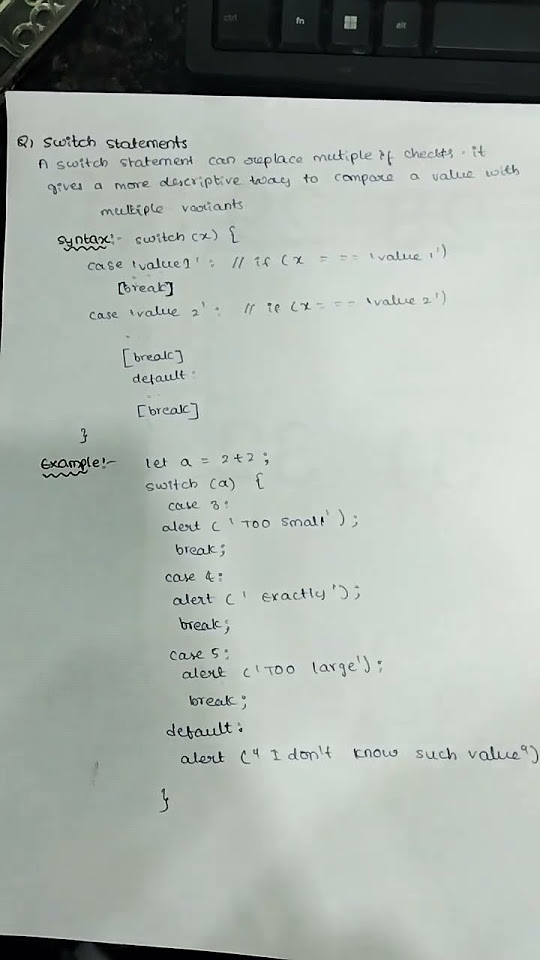 ctrl fn alt
Q) Switch statements
A switch statement can replace mutiple if checks. it
gives a more descriptive way to compare a value with
multiple variants
syntax:- switch (x) {
case 'value1' : // if (x === 'value 1')
[break]
case 'value 2' : // if (x=== 'value 2')
[break]
default :
[break]
}
Example:- let a = 2+2 ;
switch (a) {
case 3:
alert ( ' Too small' ) ;
break;
case 4:
alert ( ' Exactly ') ;
break;
case 5:
alert ('Too large') ;
break;
default:
alert (" I don't know such value")
}